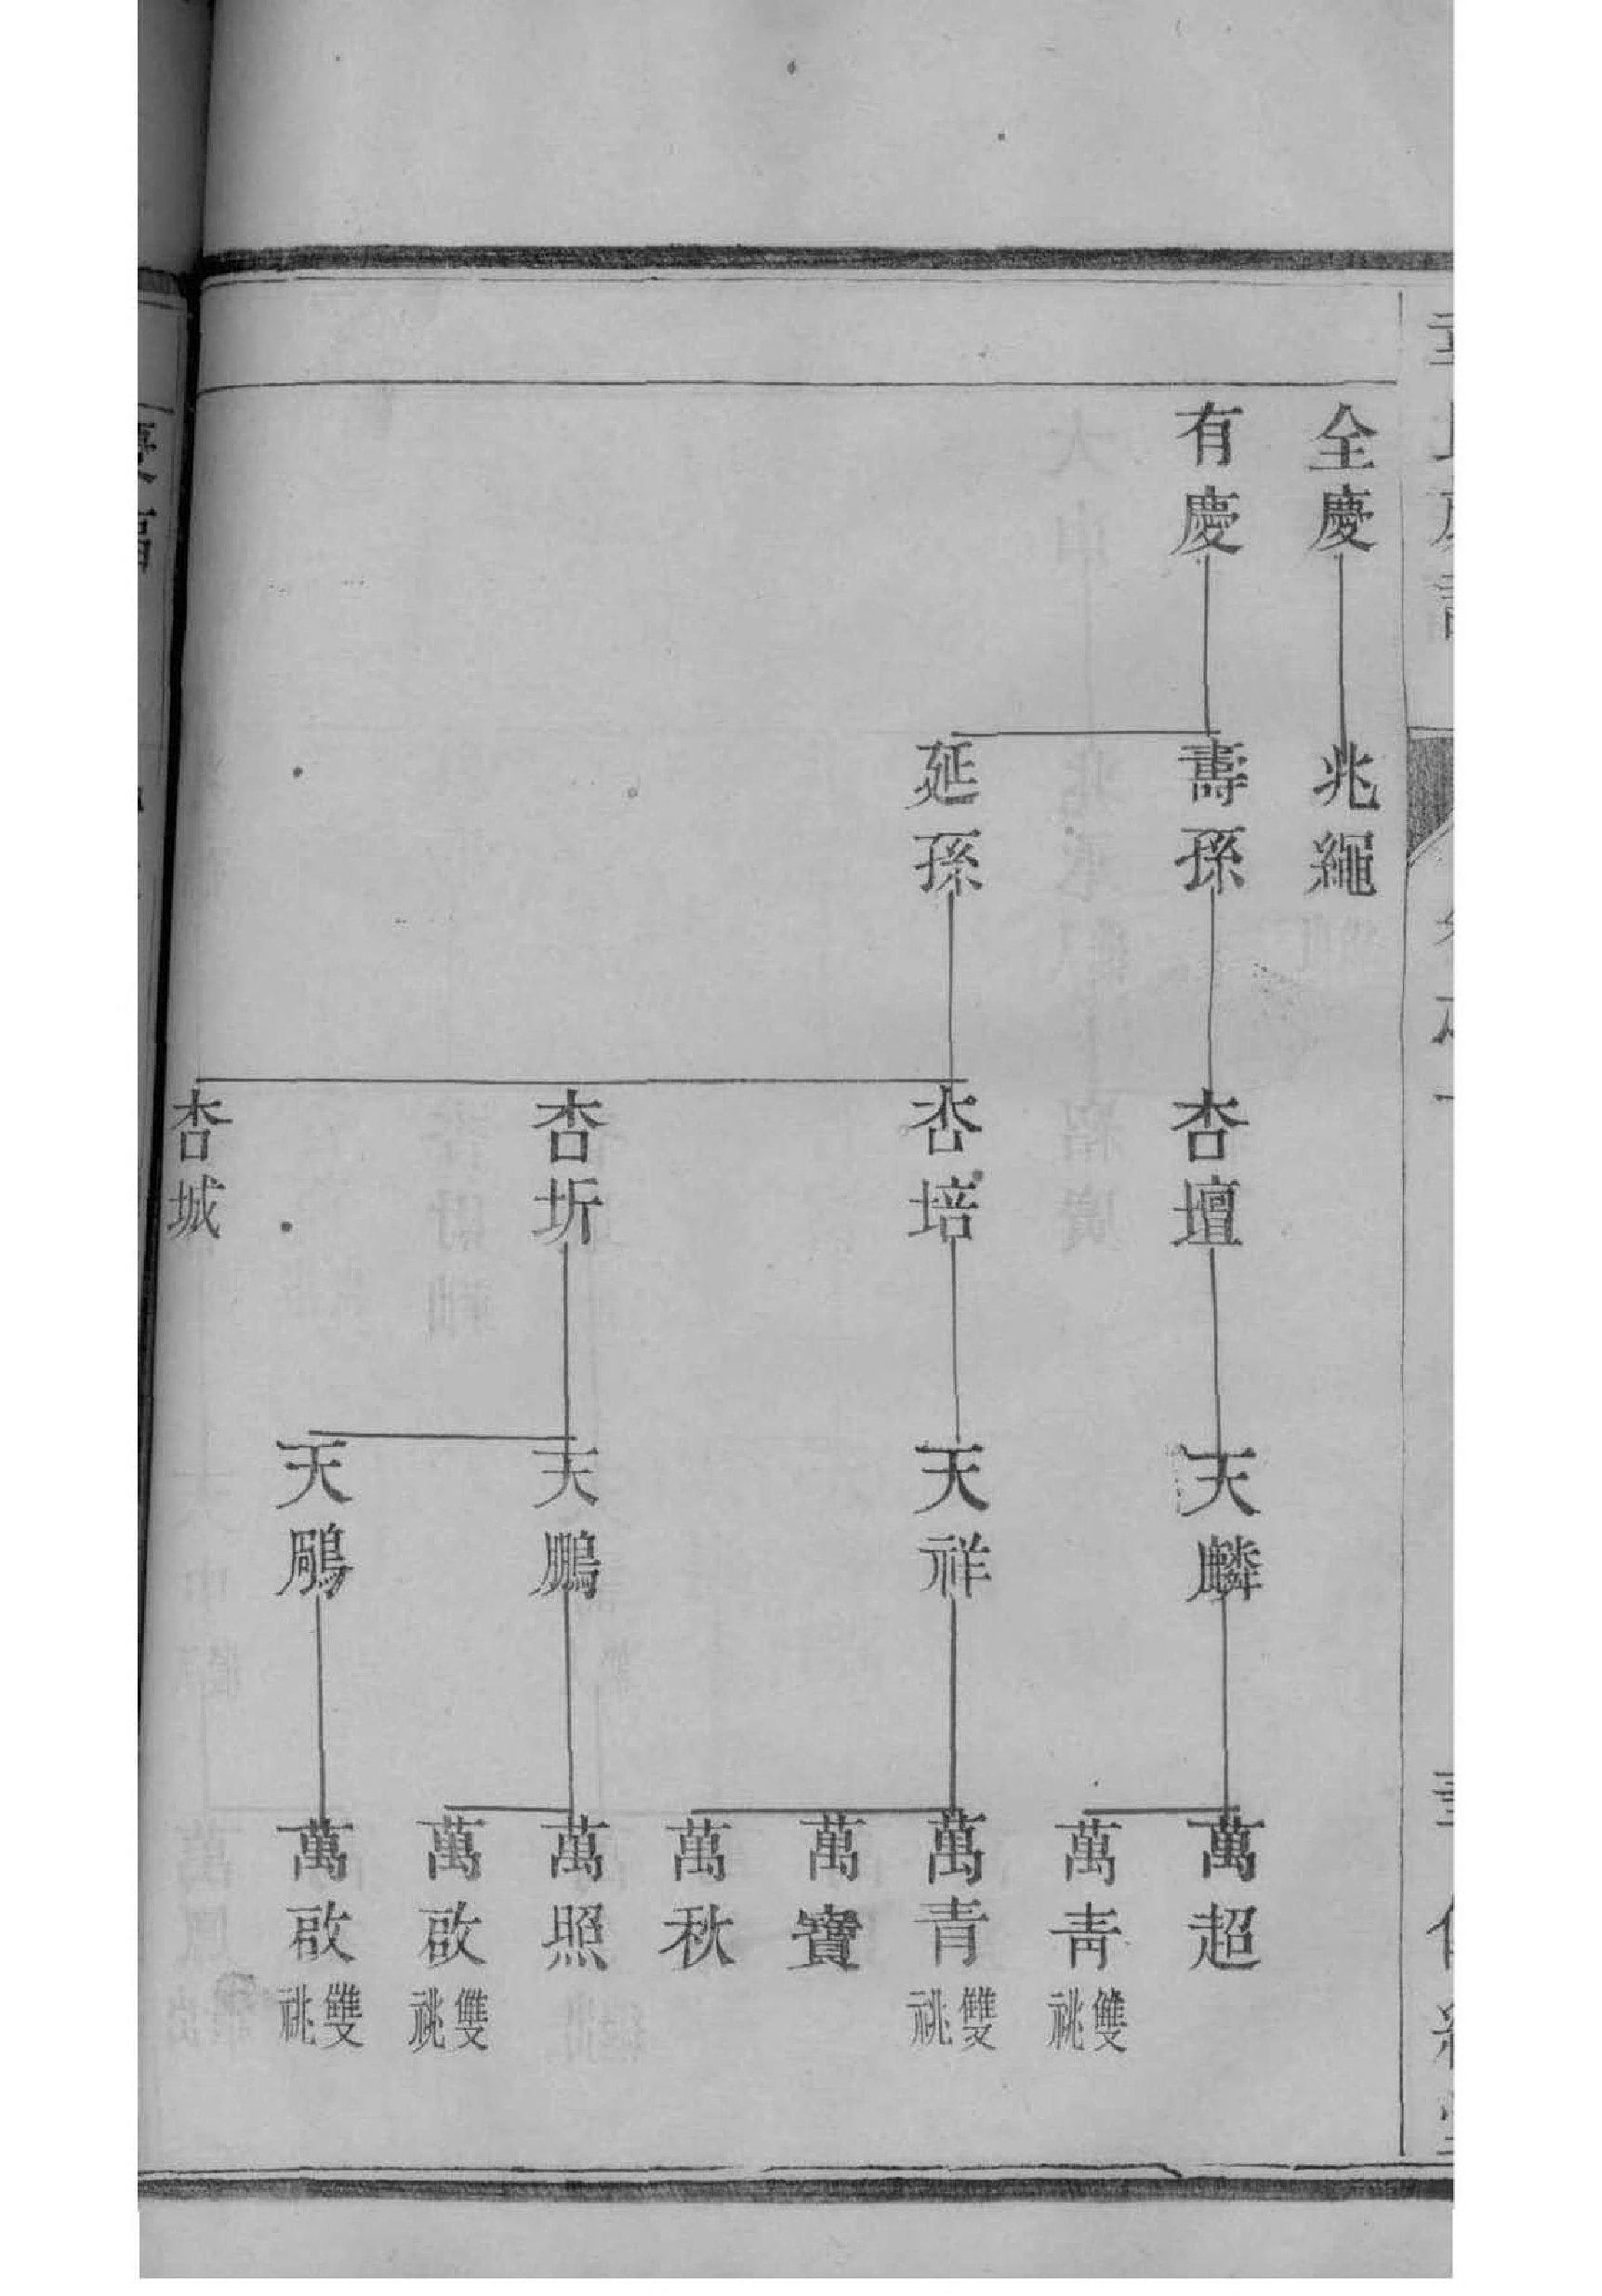 全慶
兆繩
有慶
壽孫
杏壇
天麟
萬超
萬靑
雙祧
延孫
杏培
天祥
萬青
雙祧
萬寶
萬秋
杏圻
天鵬
萬照
萬啟
雙祧
天鵰
萬啟
雙祧
杏城